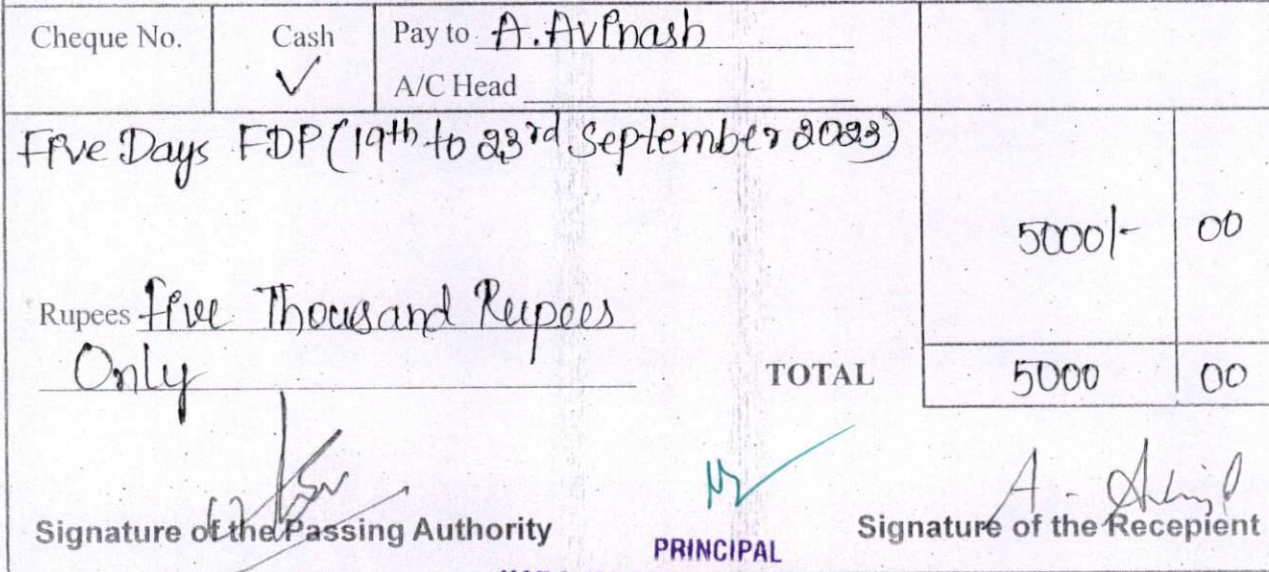 Cheque No. Cash Pay to A. Avinash
✓ A/C Head
Five Days FDP (19th to 23rd September 2023)
5000/- 00
Rupees Five Thousand Rupees
Only TOTAL 5000 00
Signature of the Passing Authority PRINCIPAL Signature of the Recepient